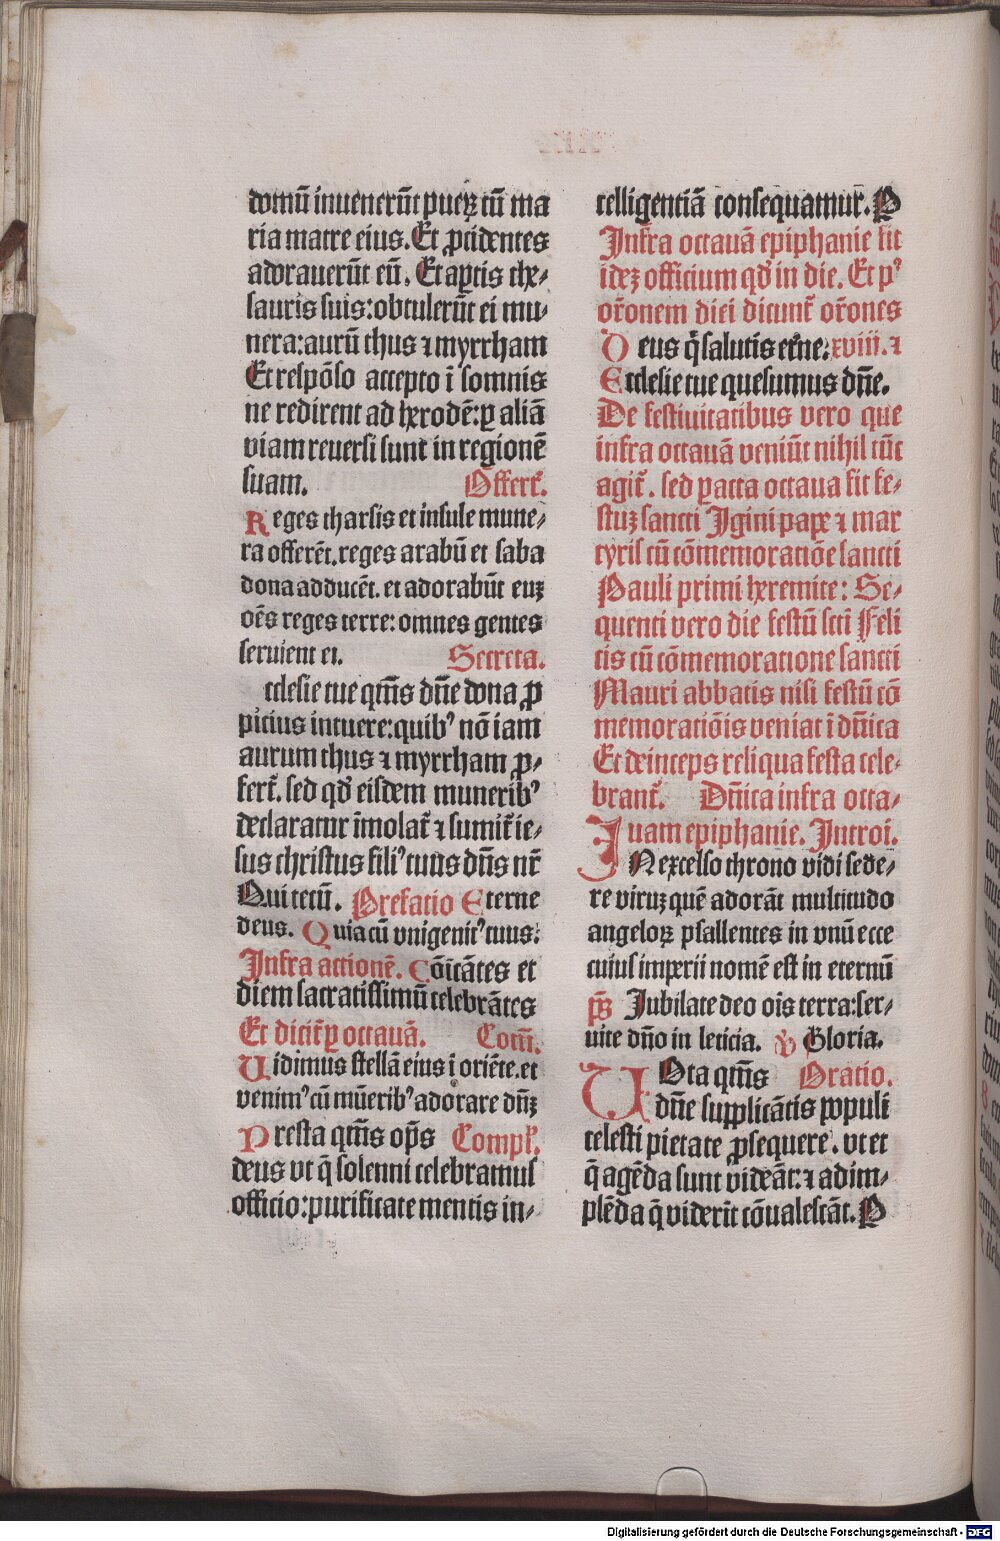 domū inuenerūt pueꝝ cū ma
ria matre eius. Et ꝓcidentes
adorauerūt eū. Et aꝑtis the⸗
sauris suis: obtulerūt ei mu⸗
nera: aurū thus ⁊ myrrham
Et respōso accepto ī somnis
ne redirent ad herodē: ꝑ aliā
viam reuersi sunt in regionē
suam. Offert̄.
Reges tharsis et insule mune⸗
ra offerēt. reges arabū et saba
dona adducēt. et adorabūt euꝫ
oēs reges terre: omnes gentes
seruient ei. Secreta.
cclesie tue qm̄s dn̄e dona ꝓ
picius intuere: quibꝰ nō iam
aurum thus ⁊ myrrham ꝓ⸗
fert̄. sed qd̄ eisdem muneribꝰ
declaratur īmolat̄ ⁊ sumit̄ ie⸗
sus christus filiꝰ tuus dn̄s nr̄
Qui tecū. Prefatio Eterne
deus. Quia cū vnigenitꝰ tuus.
Infra actionē. Cōicātes et
diem sacratissimū celebrātes
Et dicit̄ ꝑ octauā. Com̄.
Uidimus stellā eius ī oriēte. et
venimꝰ cū mūeribꝰ adorare dn̄ꝫ
Presta qm̄s op̄s Compl̄.
deus vt q̄ solenni celebramus
officio: purificate mentis in⸗
telligentiā consequamur̄. P
Infra octauā epiphanie fit
ideꝫ officium qd̄ in die. Et pꝰ
or̄onem diei dicunt̄ or̄ones
Deus q̄ salutis et̄ne. xviii. ⁊
Ecclesie tue quesumus dn̄e.
De festiuitatibus vero que
infra octauā veniūt nihil tūc
agit̄. sed ꝑacta octaua fit fe⸗
stuꝫ sancti Igini pape ⁊ mar
tyris cū cōmemoratiōe sancti
Pauli primi heremite: Se⸗
quenti vero die festū scti Feli
cis cū cōmemoratione sancti
Mauri abbatis nisi festū cō
memoratiōis veniat ī dn̄ica
Et deinceps reliqua festa cele⸗
brant̄. Dn̄ica infra octa⸗
uam epiphanie. Introi.
IN excelso throno vidi sede⸗
re viruꝫ quē adorāt multitudo
angeloꝝ psallentes in vnū ecce
cuius imperii nomē est in eternū
ps̄ Iubilate deo ois terra: ser⸗
uite dn̄o in leticia. ℣ Gloria.
UOta qm̄s Oratio.
dn̄e supplicātis populi
celesti pietate ꝓsequere. vt et
q̄ agēda sunt videāt: ⁊ adim⸗
plēda q̄ viderīt cōualescāt. P
Digitalisierung gefördert durch die Deutsche Forschungsgemeinschaft - DFG